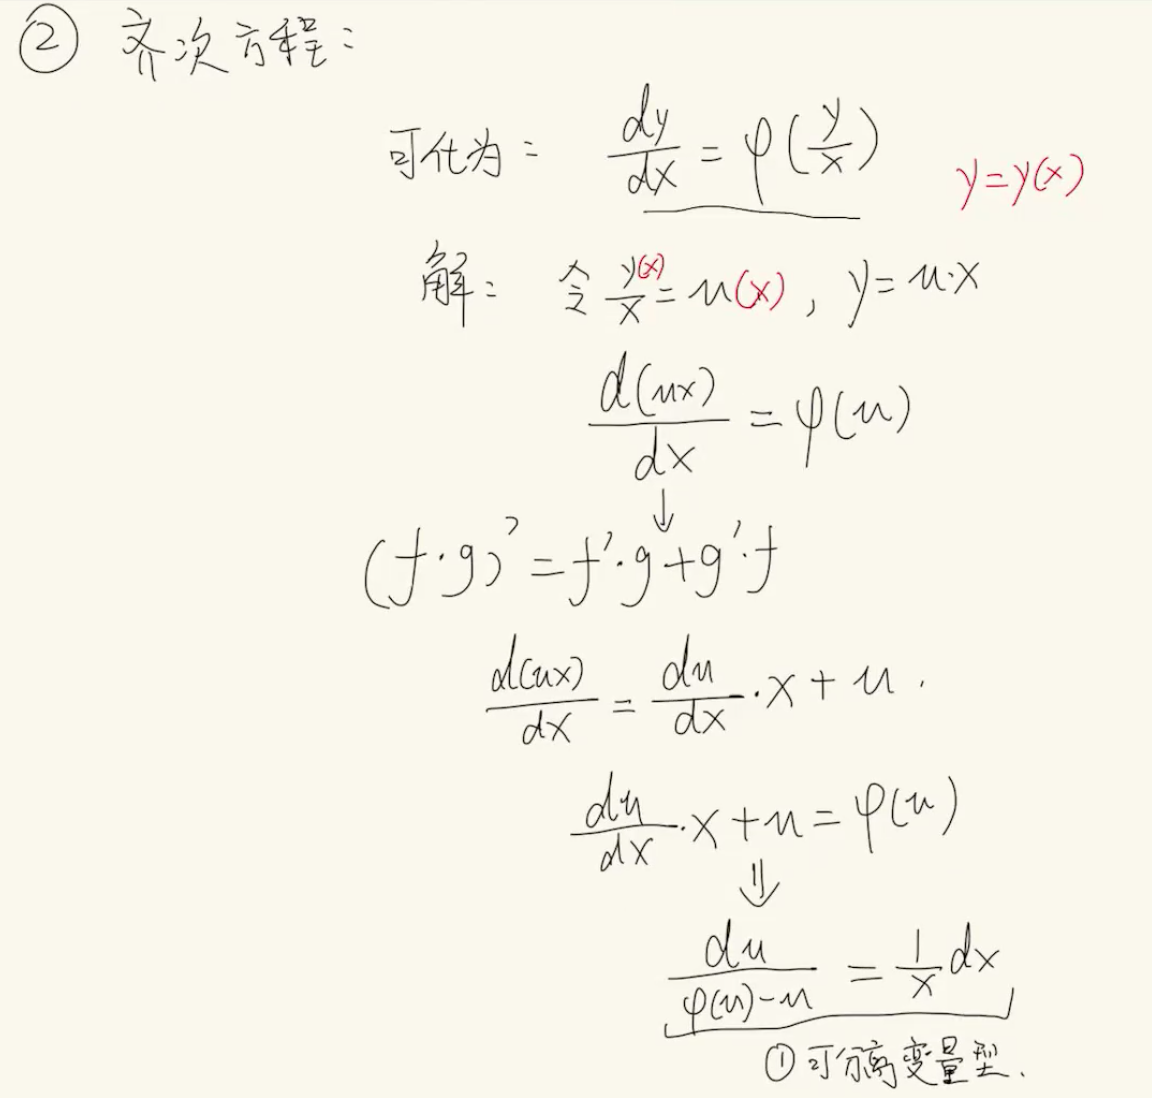 ② 齐次方程:
可化为: dy/dx = φ(y/x) y=y(x)
解: 令 y(x)/x = u(x), y=u·x
d(ux)/dx = φ(u)
↓
(f·g)' = f'·g+g'·f
d(ux)/dx = du/dx ·x+u.
du/dx ·x+u=φ(u)
⇓
du/(φ(u)-u) = 1/x dx
①可分离变量型.